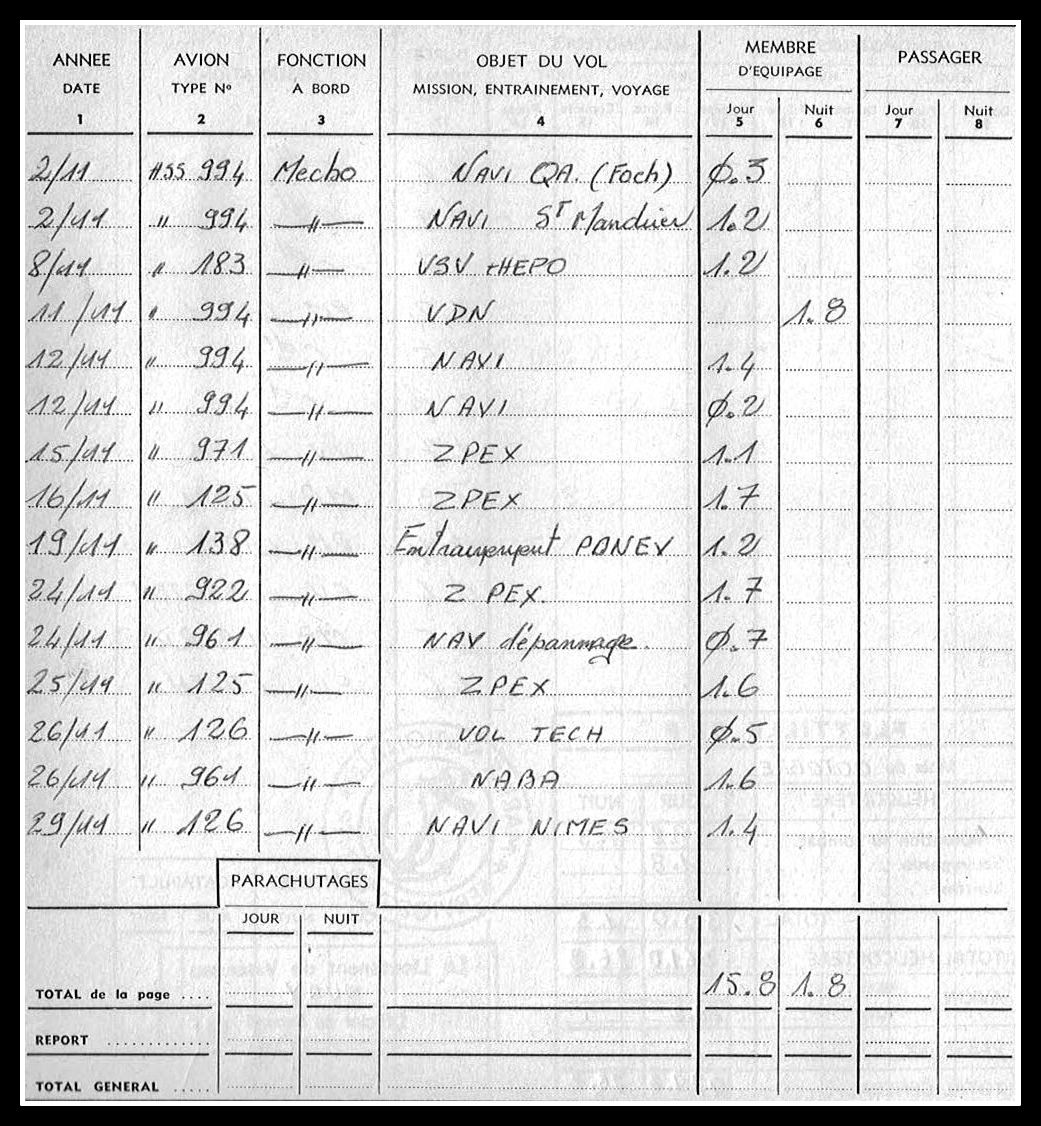 ANNEE AVION FONCTION OBJET DU VOL MEMBRE PASSAGER
DATE TYPE Nº A BORD MISSION, ENTRAINEMENT, VOYAGE D'EQUIPAGE
Jour Nuit Jour Nuit
1 2 3 4 5 6 7 8
2/11 HSS 994 Mecbo NAVI QA. (Foch) Ø.3
2/11 " 994 —"— NAVI ST Mandrier 1.2
8/11 " 183 —"— VSV + HEPO 1.2
11/11 " 994 —"— VDN 1.8
12/11 " 994 —"— NAVI 1.4
12/11 " 994 —"— NAVI Ø.2
15/11 " 971 —"— ZPEX 1.1
16/11 " 125 —"— ZPEX 1.7
19/11 " 138 —"— Entrainement PONEV 1.2
24/11 " 922 —"— Z PEX. 1.7
24/11 " 961 —"— NAV dépannage. Ø.7
25/11 " 125 —"— ZPEX 1.6
26/11 " 126 —"— VOL TECH Ø.5
26/11 " 961 —"— NABA 1.6
29/11 " 126 —"— NAVI NIMES 1.4
PARACHUTAGES
JOUR NUIT
TOTAL de la page .... 15.8 1.8
REPORT .............
TOTAL GENERAL .....